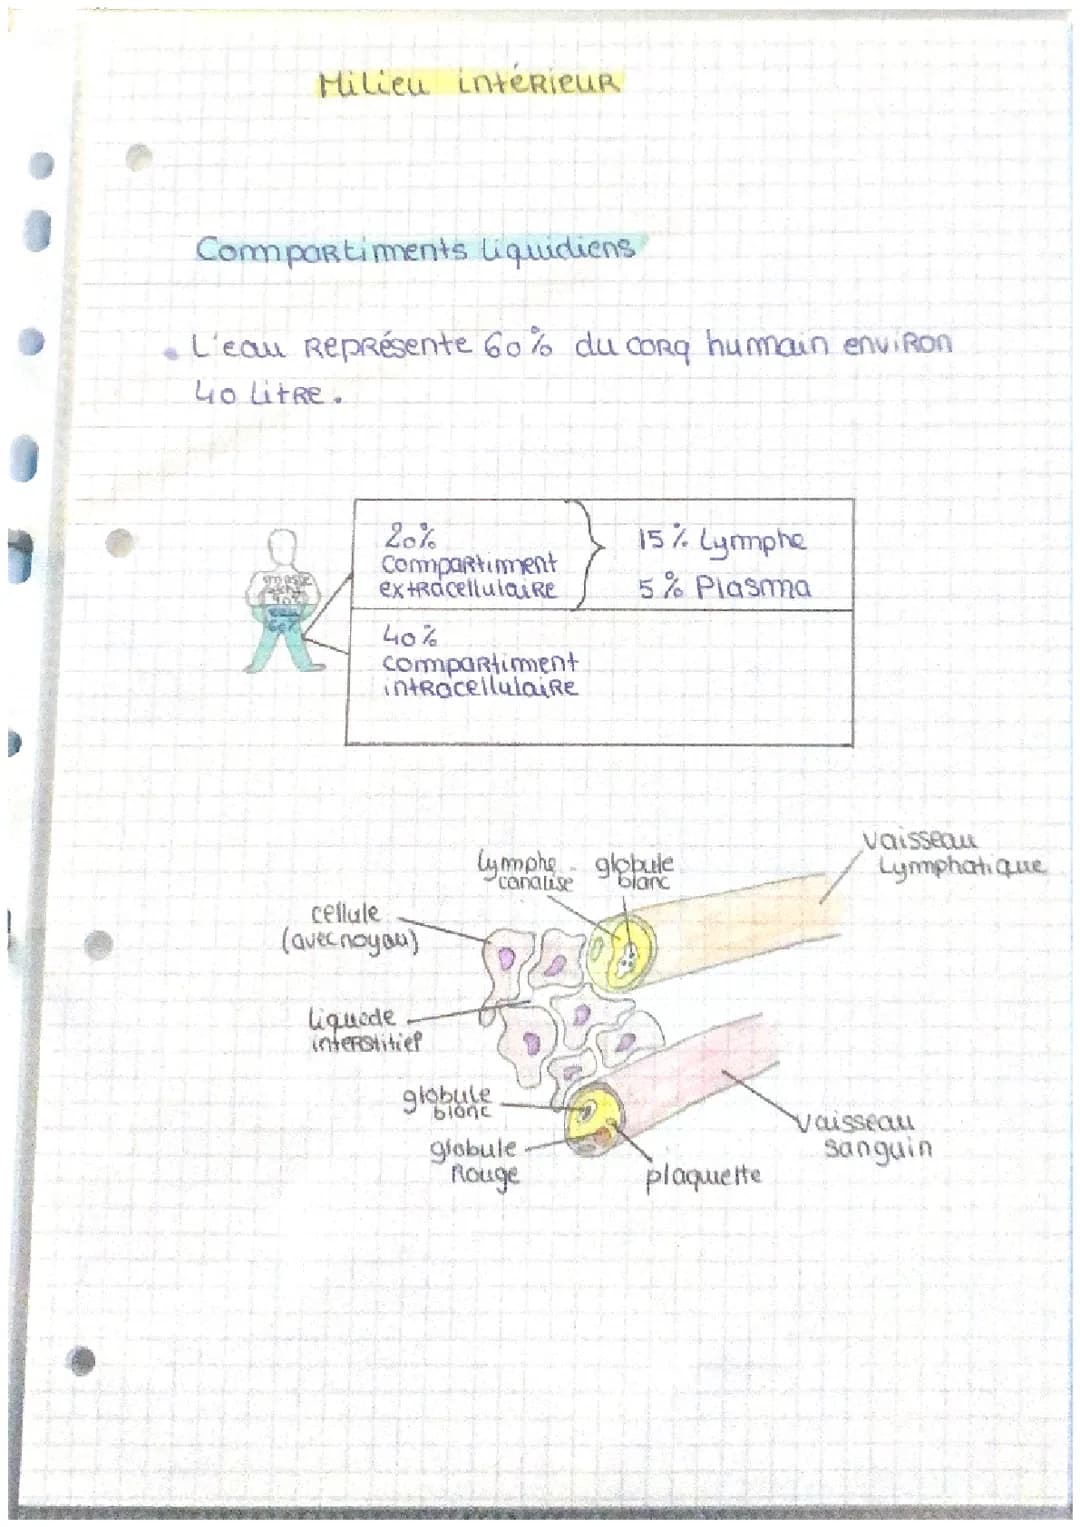 Milieu intérieur
Compartiments liquidiens
L'eau représente 60% du corq humain environ
40 litre.
20%
compartiment
extracellulaire
15% Lymphe
5% Plasma
masse
40%
eau
60%
40%
compartiment
intracellulaire
Vaisseau
Lymphatique
lymphe
canalise
globule
blanc
cellule
(avec noyau)
liquede
interstitiel
globule
blanc
globule
Rouge
plaquette
Vaisseau
sanguin